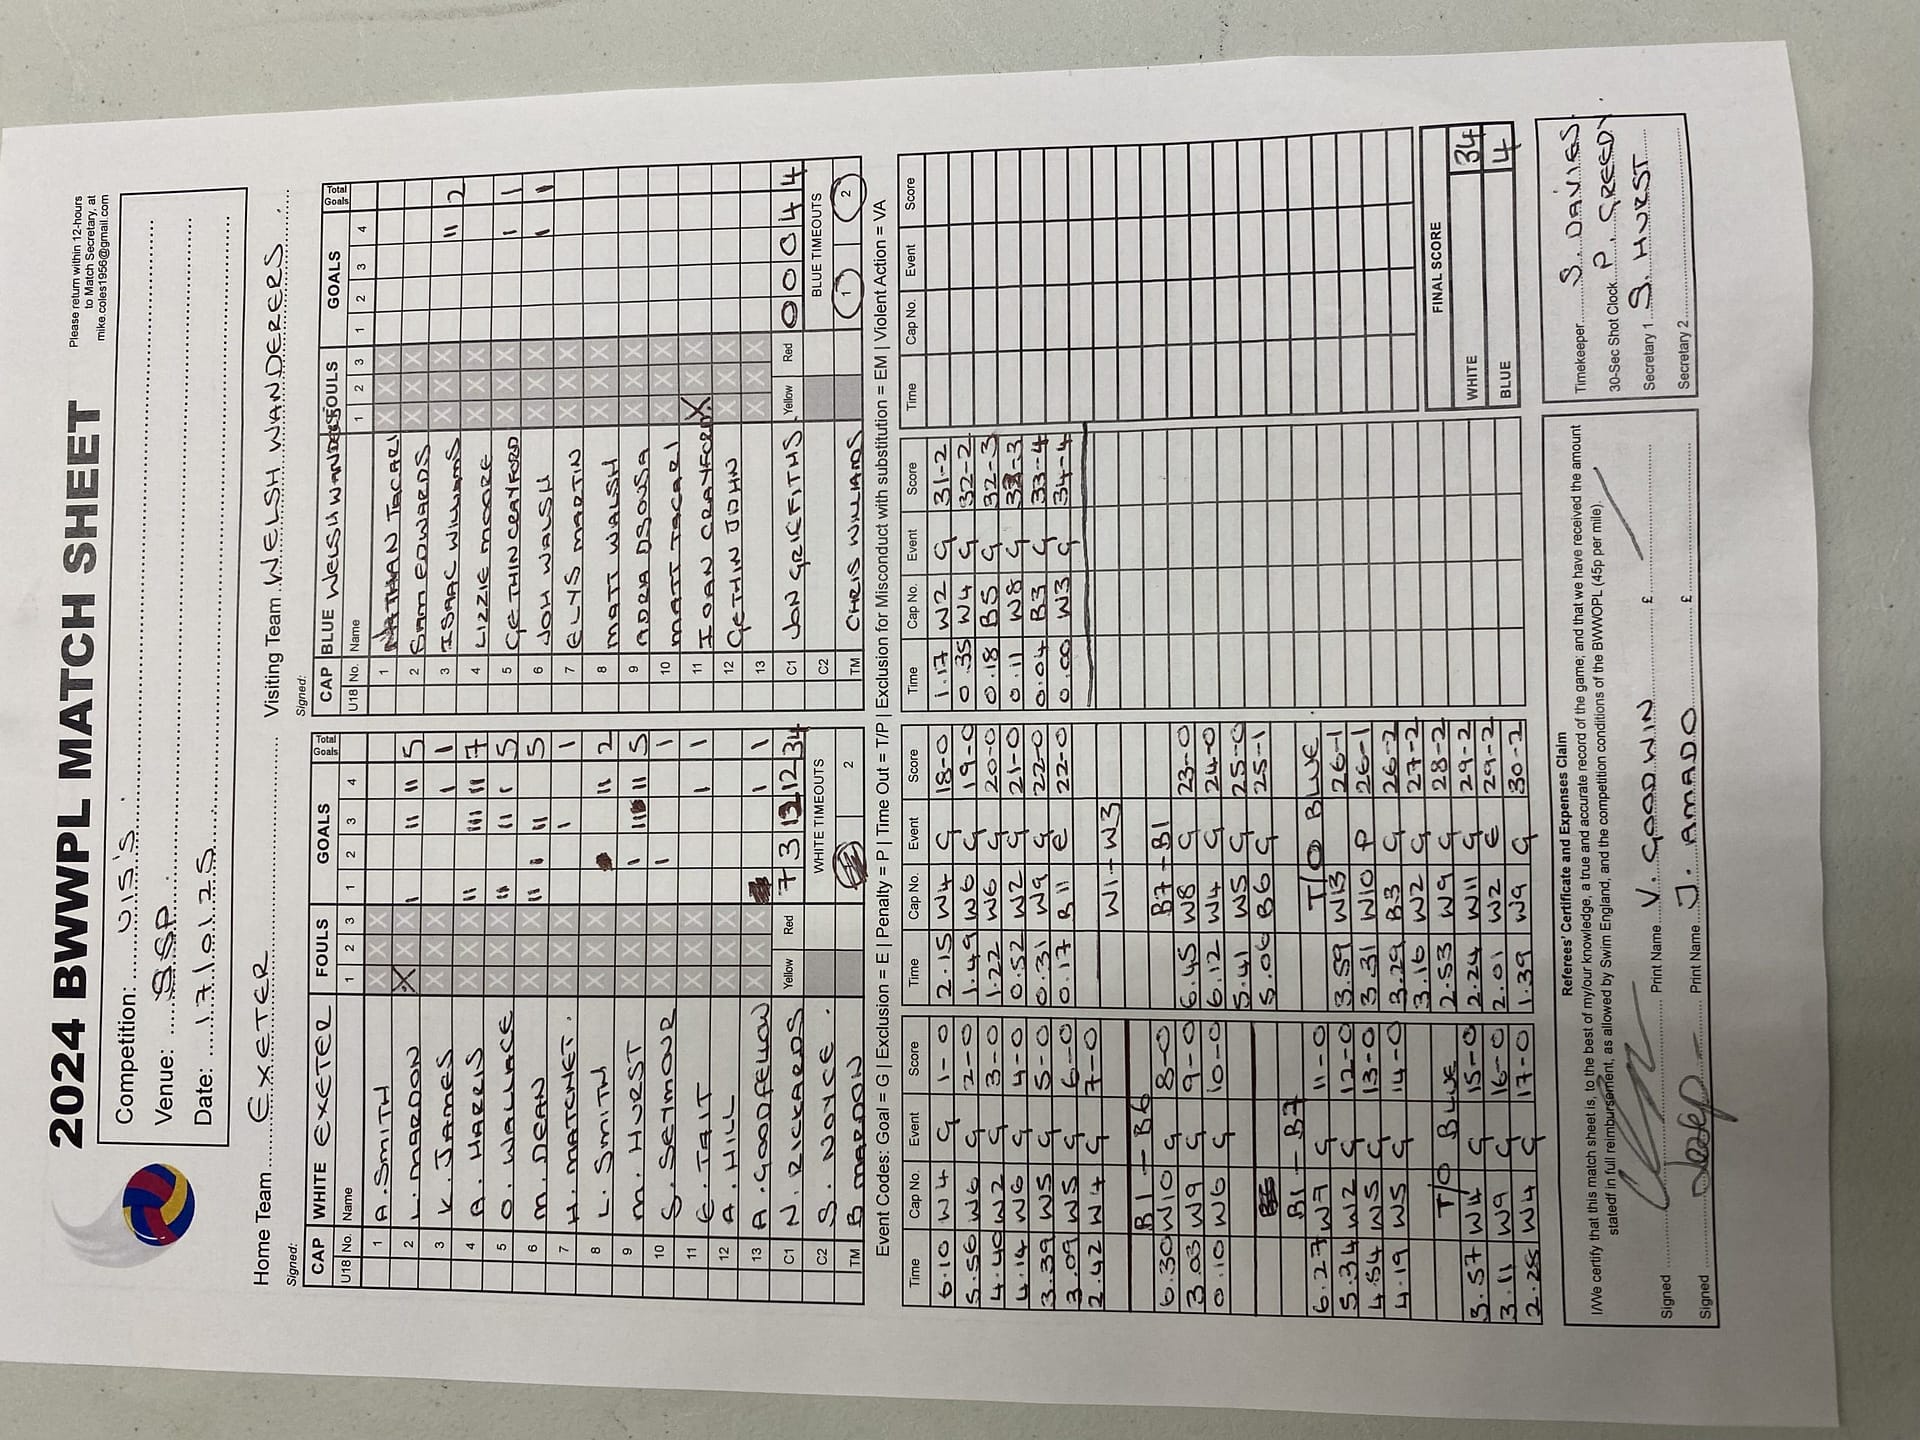 2024 BWWPL MATCH SHEET
Please return within 12-hours
to Match Secretary, at
mike.coles1956@gmail.com
Competition: U15'S.
Venue: SSP.
Date: 17/01/25
Home Team EXETER Visiting Team WELSH WANDERERS.
Signed: Signed:
CAP WHITE EXETER FOULS GOALS Total Goals
U18 No. Name 1 2 3 1 2 3 4
1 A. SMITH
2 L. MARDON X I II II 5
3 K. JAMES I 1
4 A. HARRIS II III II 7
5 O. WALLACE II II I 5
6 M. DEAN II I II 5
7 H. MATCHET. I 1
8 L. SMITH II 2
9 M. HURST I III II 5
10 S. SEYMOUR I 1
11 E. TAIT I 1
12 A. HILL
13 A. GOODFELLOW I 1
C1 N. RICKARDS Yellow Red 7 3 12 12 34
C2 S. NOYCE. WHITE TIMEOUTS
TM B MARDON 2
CAP BLUE WELSH WANDERERS FOULS GOALS Total Goals
U18 No. Name 1 2 3 1 2 3 4
1 NATHAN TACARI
2 SAM EDWARDS
3 ISAAC WILLIAMS II 2
4 LIZZIE MOORE
5 GETHIN CRAYFORD I 1
6 JOH WALSH I 1
7 ELYS MARTIN
8 MATT WALSH
9 ADRA DSOUSA
10 MATT TACARI
11 IOAN CRAYFORD X
12 GETHIN JOHN
13
C1 JON GRIFFITHS Yellow Red 0 0 0 4 4
C2 BLUE TIMEOUTS
TM CHRIS WILLIAMS 1 2
Event Codes: Goal = G | Exclusion = E | Penalty = P | Time Out = T/P | Exclusion for Misconduct with substitution = EM | Violent Action = VA
Time Cap No. Event Score
6.10 W4 G 1-0
5.56 W6 G 2-0
4.40 W2 G 3-0
4.14 W6 G 4-0
3.39 W5 G 5-0
3.09 W5 G 6-0
2.42 W4 G 7-0
B1 - B6
6.30 W10 G 8-0
3.03 W9 G 9-0
0.10 W6 G 10-0
B1 - B7
6.27 W7 G 11-0
5.34 W2 G 12-0
4.54 W5 G 13-0
4.19 W5 G 14-0
T/O BLUE
3.57 W4 G 15-0
3.11 W9 G 16-0
2.25 W4 G 17-0
Time Cap No. Event Score
2.15 W4 G 18-0
1.49 W6 G 19-0
1.22 W6 G 20-0
0.52 W2 G 21-0
0.31 W9 G 22-0
0.17 B11 E 22-0
W1 - W3
B7 - B1
6.45 W8 G 23-0
6.12 W4 G 24-0
5.41 W5 G 25-0
5.06 B6 G 25-1
T/O BLUE
3.59 W13 G 26-1
3.31 W10 P 26-1
3.29 B3 G 26-2
3.16 W2 G 27-2
2.53 W9 G 28-2
2.24 W11 G 29-2
2.01 W2 E 29-2
1.39 W9 G 30-2
Time Cap No. Event Score
1.17 W2 G 31-2
0.35 W4 G 32-2
0.18 B5 G 32-3
0.11 W8 G 33-3
0.04 B3 G 33-4
0.00 W3 G 34-4
Time Cap No. Event Score
FINAL SCORE
WHITE 34
BLUE 4
Referees' Certificate and Expenses Claim
I/We certify that this match sheet is, to the best of my/our knowledge, a true and accurate record of the game; and that we have received the amount
statedf in full reimbursement, as allowed by Swim England, and the competition conditions of the BWWOPL (45p per mile).
Signed Print Name V. GOODWIN £
Signed Print Name J. AMADO £
Timekeeper S. DAVIES.
30-Sec Shot Clock P. GREEDY
Secretary 1 S. HURST
Secretary 2